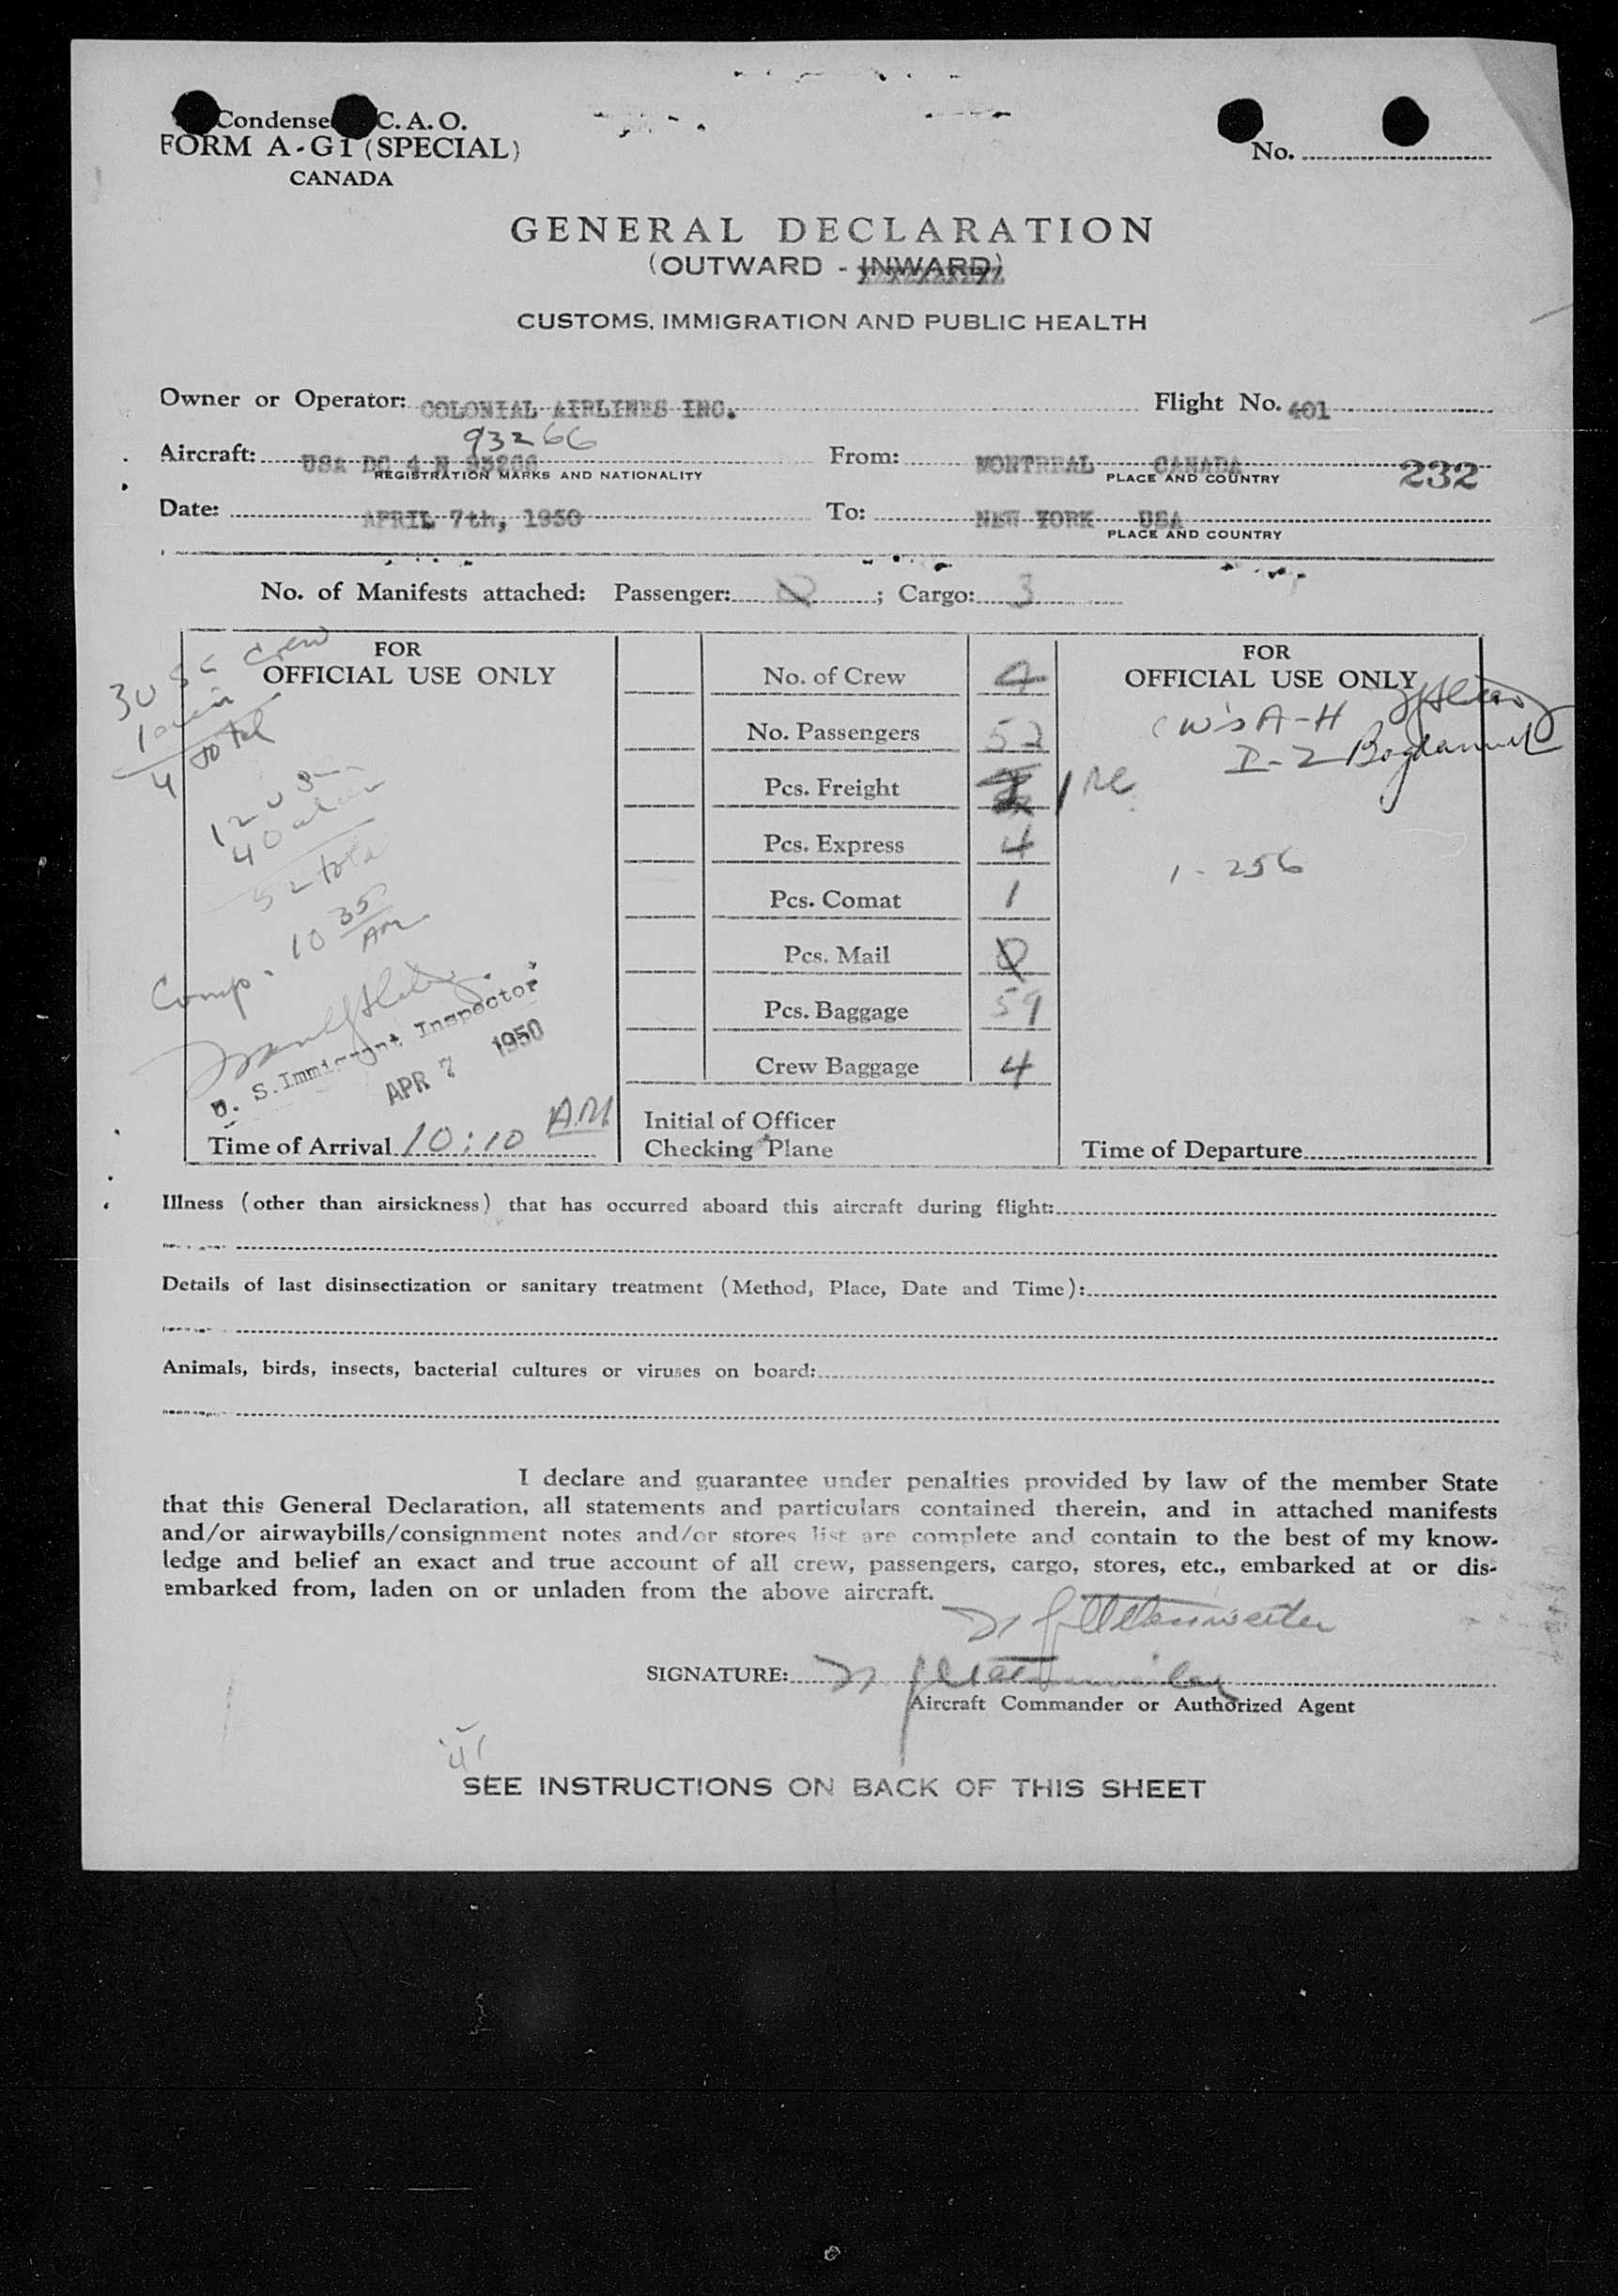 Condense C. A. O.
FORM A-G1 (SPECIAL)
CANADA
No.
GENERAL DECLARATION
(OUTWARD - INWARD)
CUSTOMS, IMMIGRATION AND PUBLIC HEALTH
Owner or Operator: COLONIAL AIRLINES INC. Flight No. 401
93266
Aircraft: USA DC 4 N 93266 From: MONTREAL CANADA 232
REGISTRATION MARKS AND NATIONALITY PLACE AND COUNTRY
Date: APRIL 7th, 1950 To: NEW YORK USA
PLACE AND COUNTRY
No. of Manifests attached: Passenger: 0; Cargo: 3
3 US C Crew
1 alien
4 total
FOR
OFFICIAL USE ONLY
12 US
40 alien
52 total
Comp. 10 35 AM
U. S. Immigrant Inspector
APR 7 1950
Time of Arrival 10:10 AM
No. of Crew 4
No. Passengers 52
Pcs. Freight 1 RC
Pcs. Express 4
Pcs. Comat 1
Pcs. Mail 0
Pcs. Baggage 59
Crew Baggage 4
Initial of Officer
Checking Plane
FOR
OFFICIAL USE ONLY
A-H
I-Z
1-256
Time of Departure
Illness (other than airsickness) that has occurred aboard this aircraft during flight:
Details of last disinsectization or sanitary treatment (Method, Place, Date and Time):
Animals, birds, insects, bacterial cultures or viruses on board:
I declare and guarantee under penalties provided by law of the member State
that this General Declaration, all statements and particulars contained therein, and in attached manifests
and/or airwaybills/consignment notes and/or stores list are complete and contain to the best of my know-
ledge and belief an exact and true account of all crew, passengers, cargo, stores, etc., embarked at or dis-
embarked from, laden on or unladen from the above aircraft.
SIGNATURE:
Aircraft Commander or Authorized Agent
SEE INSTRUCTIONS ON BACK OF THIS SHEET